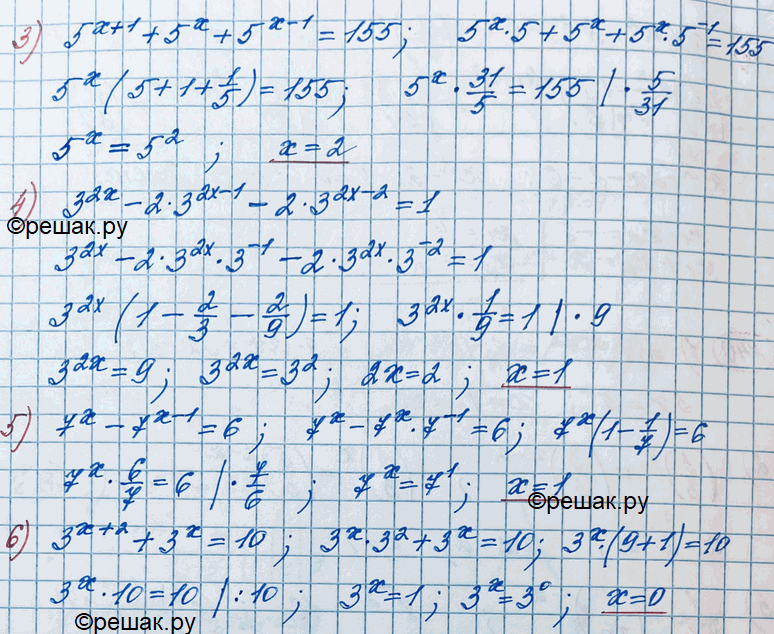 3) 5^{x+1} + 5^x + 5^{x-1} = 155; 5^x·5 + 5^x + 5^x·5^{-1} = 155
5^x (5+1+\frac{1}{5}) = 155; 5^x · \frac{31}{5} = 155 | · \frac{5}{31}
5^x = 5^2 ; x = 2
4) 3^{2x} - 2·3^{2x-1} - 2·3^{2x-2} = 1
©решак.ру
3^{2x} - 2·3^{2x}·3^{-1} - 2·3^{2x}·3^{-2} = 1
3^{2x} (1 - \frac{2}{3} - \frac{2}{9}) = 1; 3^{2x} · \frac{1}{9} = 1 | · 9
3^{2x} = 9; 3^{2x} = 3^2; 2x = 2 ; x = 1
5) 7^x - 7^{x-1} = 6 ; 7^x - 7^x·7^{-1} = 6; 7^x (1 - \frac{1}{7}) = 6
7^x · \frac{6}{7} = 6 | · \frac{7}{6} ; 7^x = 7^1; x = 1
©решак.ру
6) 3^{x+2} + 3^x = 10 ; 3^x·3^2 + 3^x = 10; 3^x·(9+1) = 10
3^x · 10 = 10 | : 10 ; 3^x = 1 ; 3^x = 3^0 ; x = 0
©решак.ру